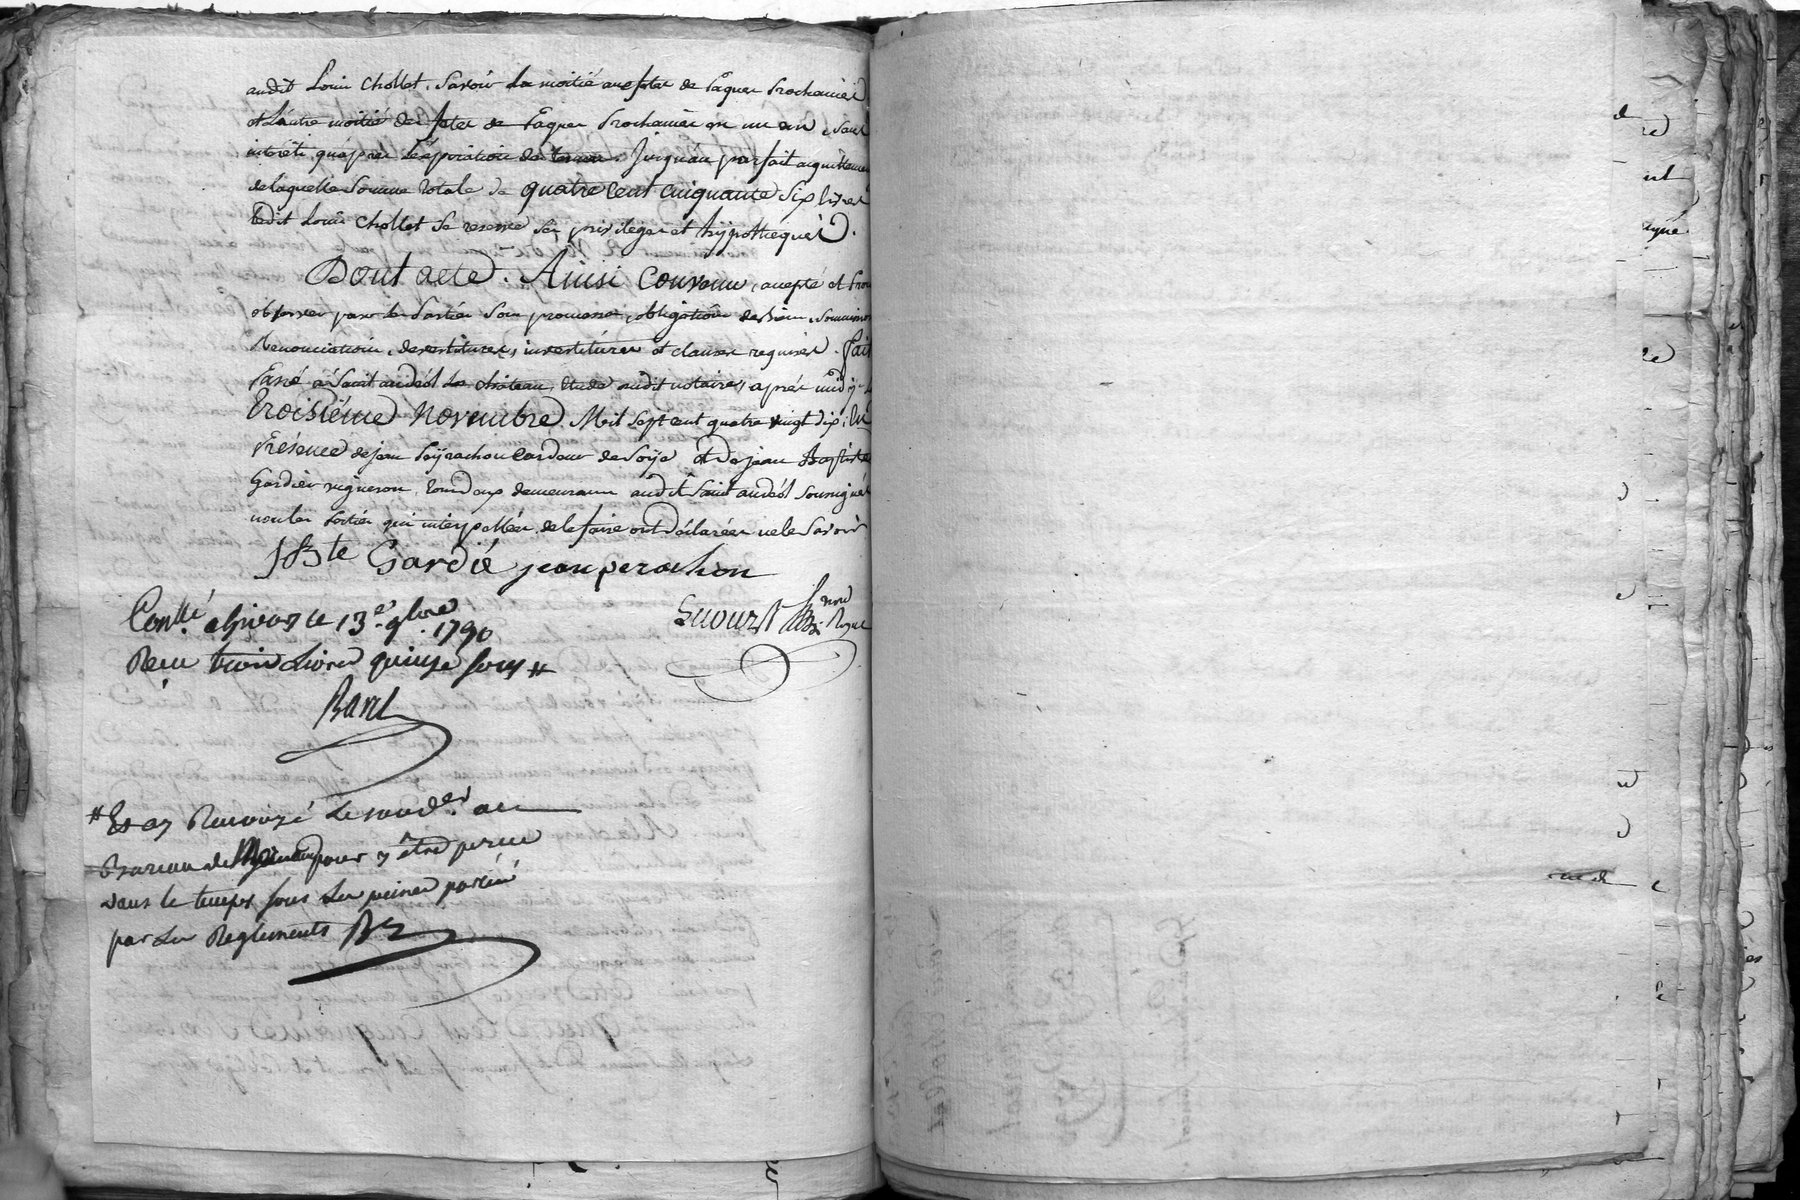 audit Louis Chollet. Savoir La moitié aux fetes de Paques Prochaines
et L'autre moitié des fetes de Paques Prochaines en un an, sans
intérêt qu'après L'expiration des termes. Jusqu'au parfait acquittement
de laquelle Somme totale de quatre cent cinquante Six livres
Ledit Louis Chollet Se reserve Ses privileges et hypotheques.
Dont acte. Ainsi Convenu, accepté et Promis
observer par les Parties Sous promesse, obligation de biens, Soumissions
Renonciations, devestitures, investitures et clauses requises. fait
Passé à Saint andéol Le château, Etude dudit notaire, après midy Le
troisième Novembre Mil Sept cent quatre vingt dix, En
Présence de jean Peyrachon Cardeur de Soye et de jean Baptiste
Gardier vigneron, tous deux demeurans audit Saint andéol Soussignés
non les Parties qui interpellées de le faire ont déclarées ne le Savoir
JBte Gardié jean perachon
Conllé a givors le 13e 9bre 1790
Recu trois Livres quinze Sous #
# Et ay Renvoyé Le vend.er au
Bureau de pour y être perçu
dans le temps sous les peines portées
par Les Reglements